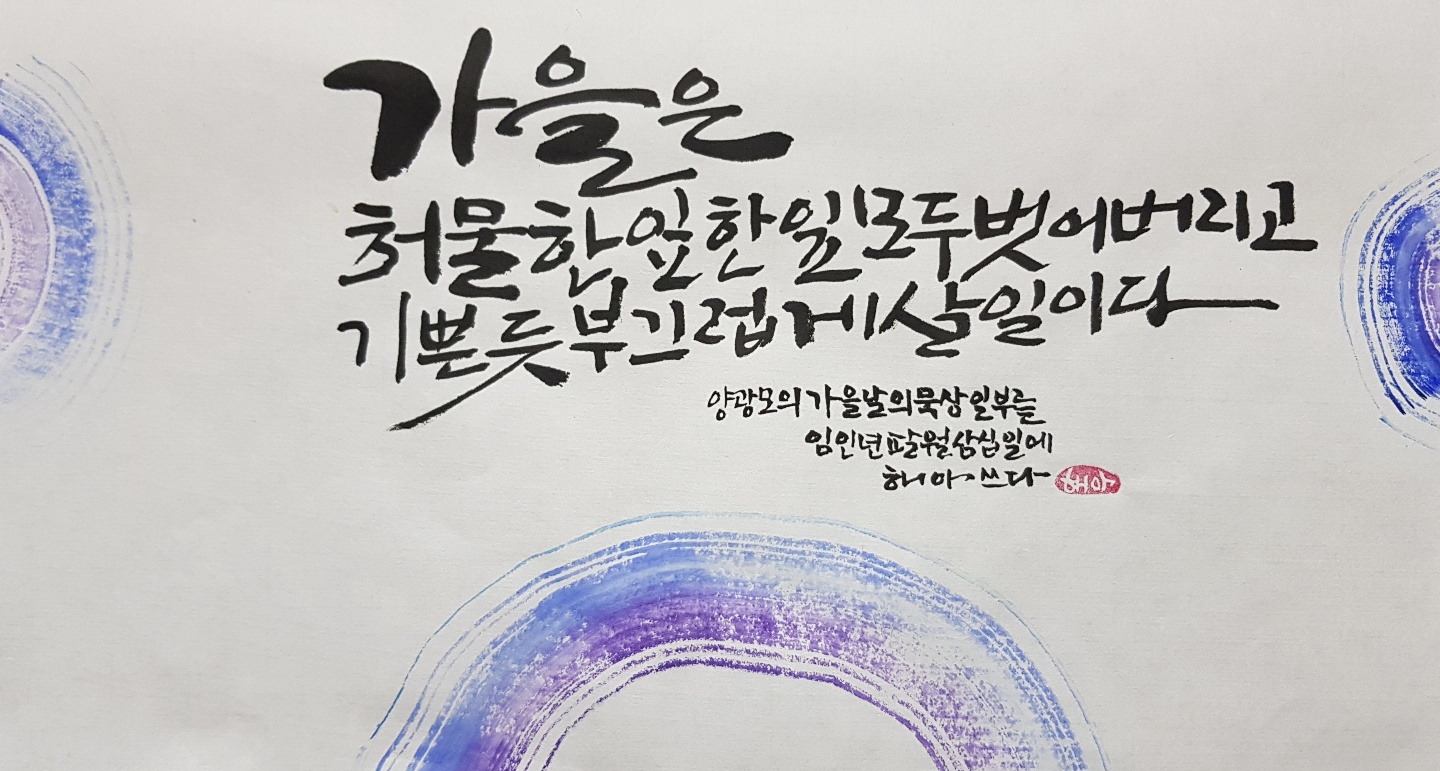 가을은
허물 한 잎 한 잎 모두 벗어 버리고
기쁜 듯 부끄럽게 살 일이다
양광모의 가을날의 묵상 일부를
임인년 팔월 삼십일에
해아 쓰다
해아